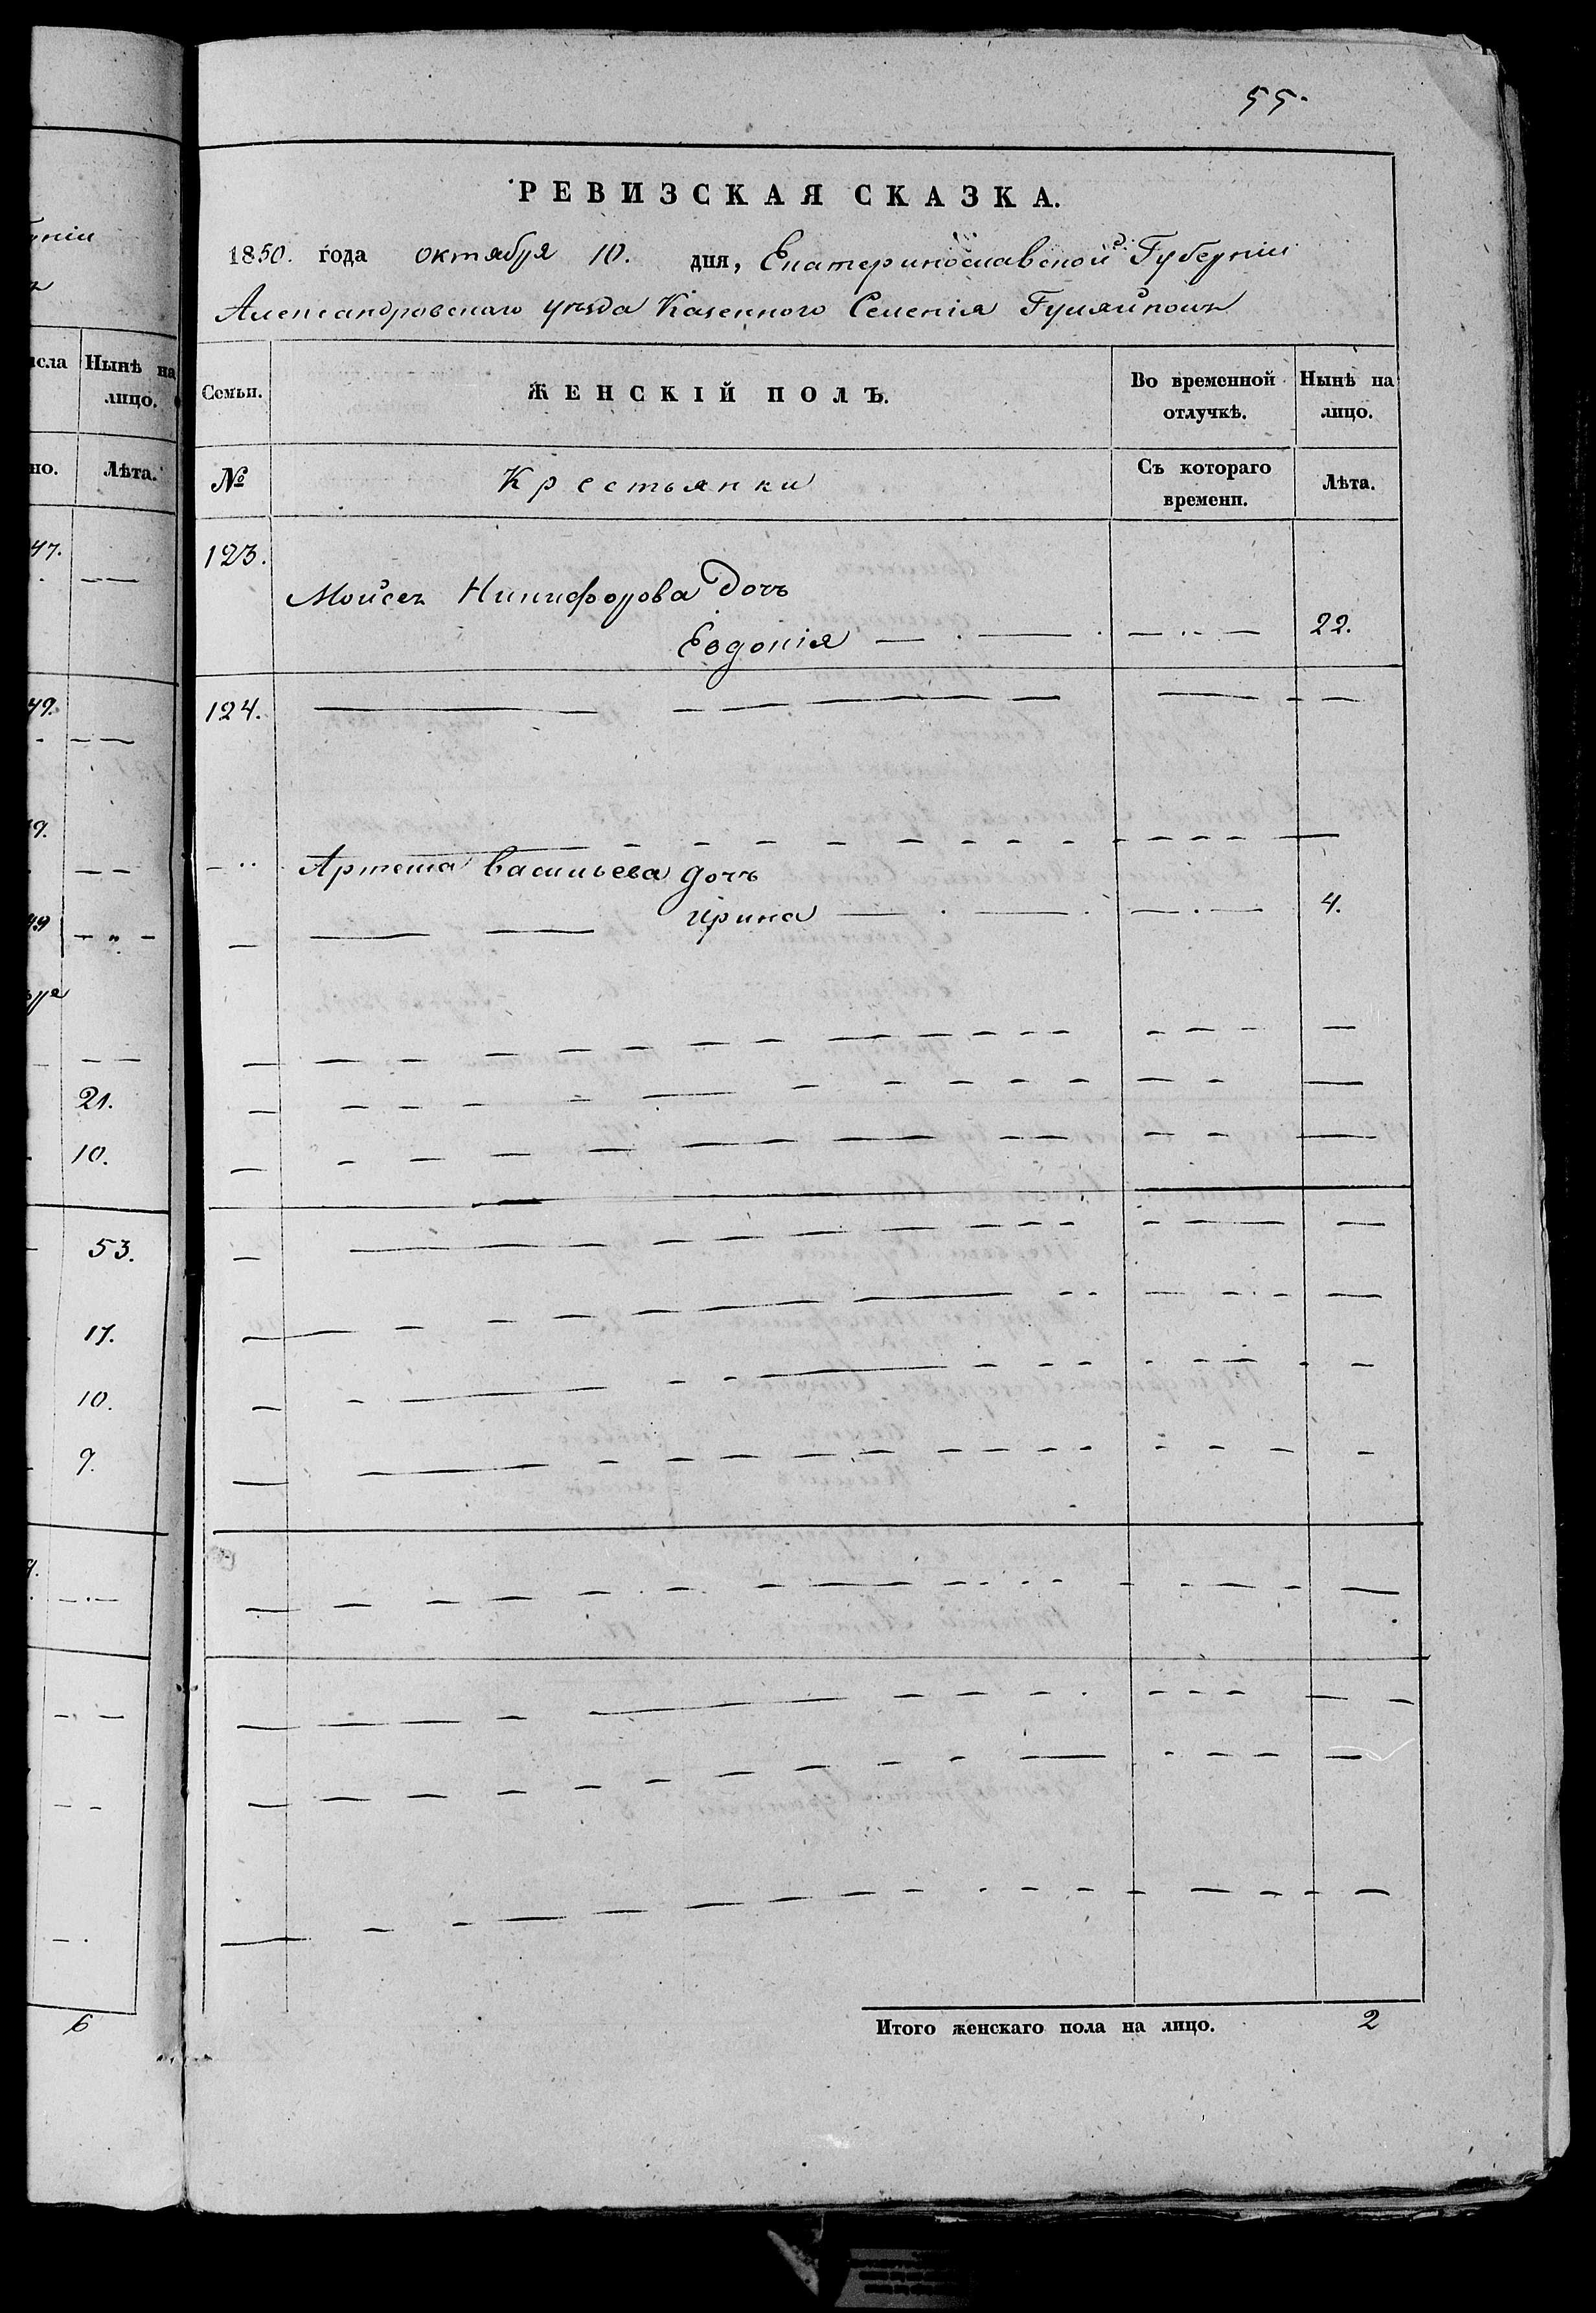 55.
РЕВИЗСКАЯ СКАЗКА.
1850. года октября 10. дня, Екатеринославской Губерніи
Александровскаго уѣзда Казенного Селенія Гуляйполь
Семьи.
ЖЕНСКІЙ ПОЛЪ.
Во временной отлучкѣ.
Нынѣ на лицо.
№
Крестьянки
Съ котораго времени.
Лѣта.
123.
Мойсея Никифорова дочь
Евдокія 22.
124.
Артема Васильева дочь
Ирина 4.
Итого женскаго пола на лицо. 2
Нынѣ на
лицо.
но.
Лѣта.
47.
49.
9.
49
21.
10.
53.
17.
10.
7.
6